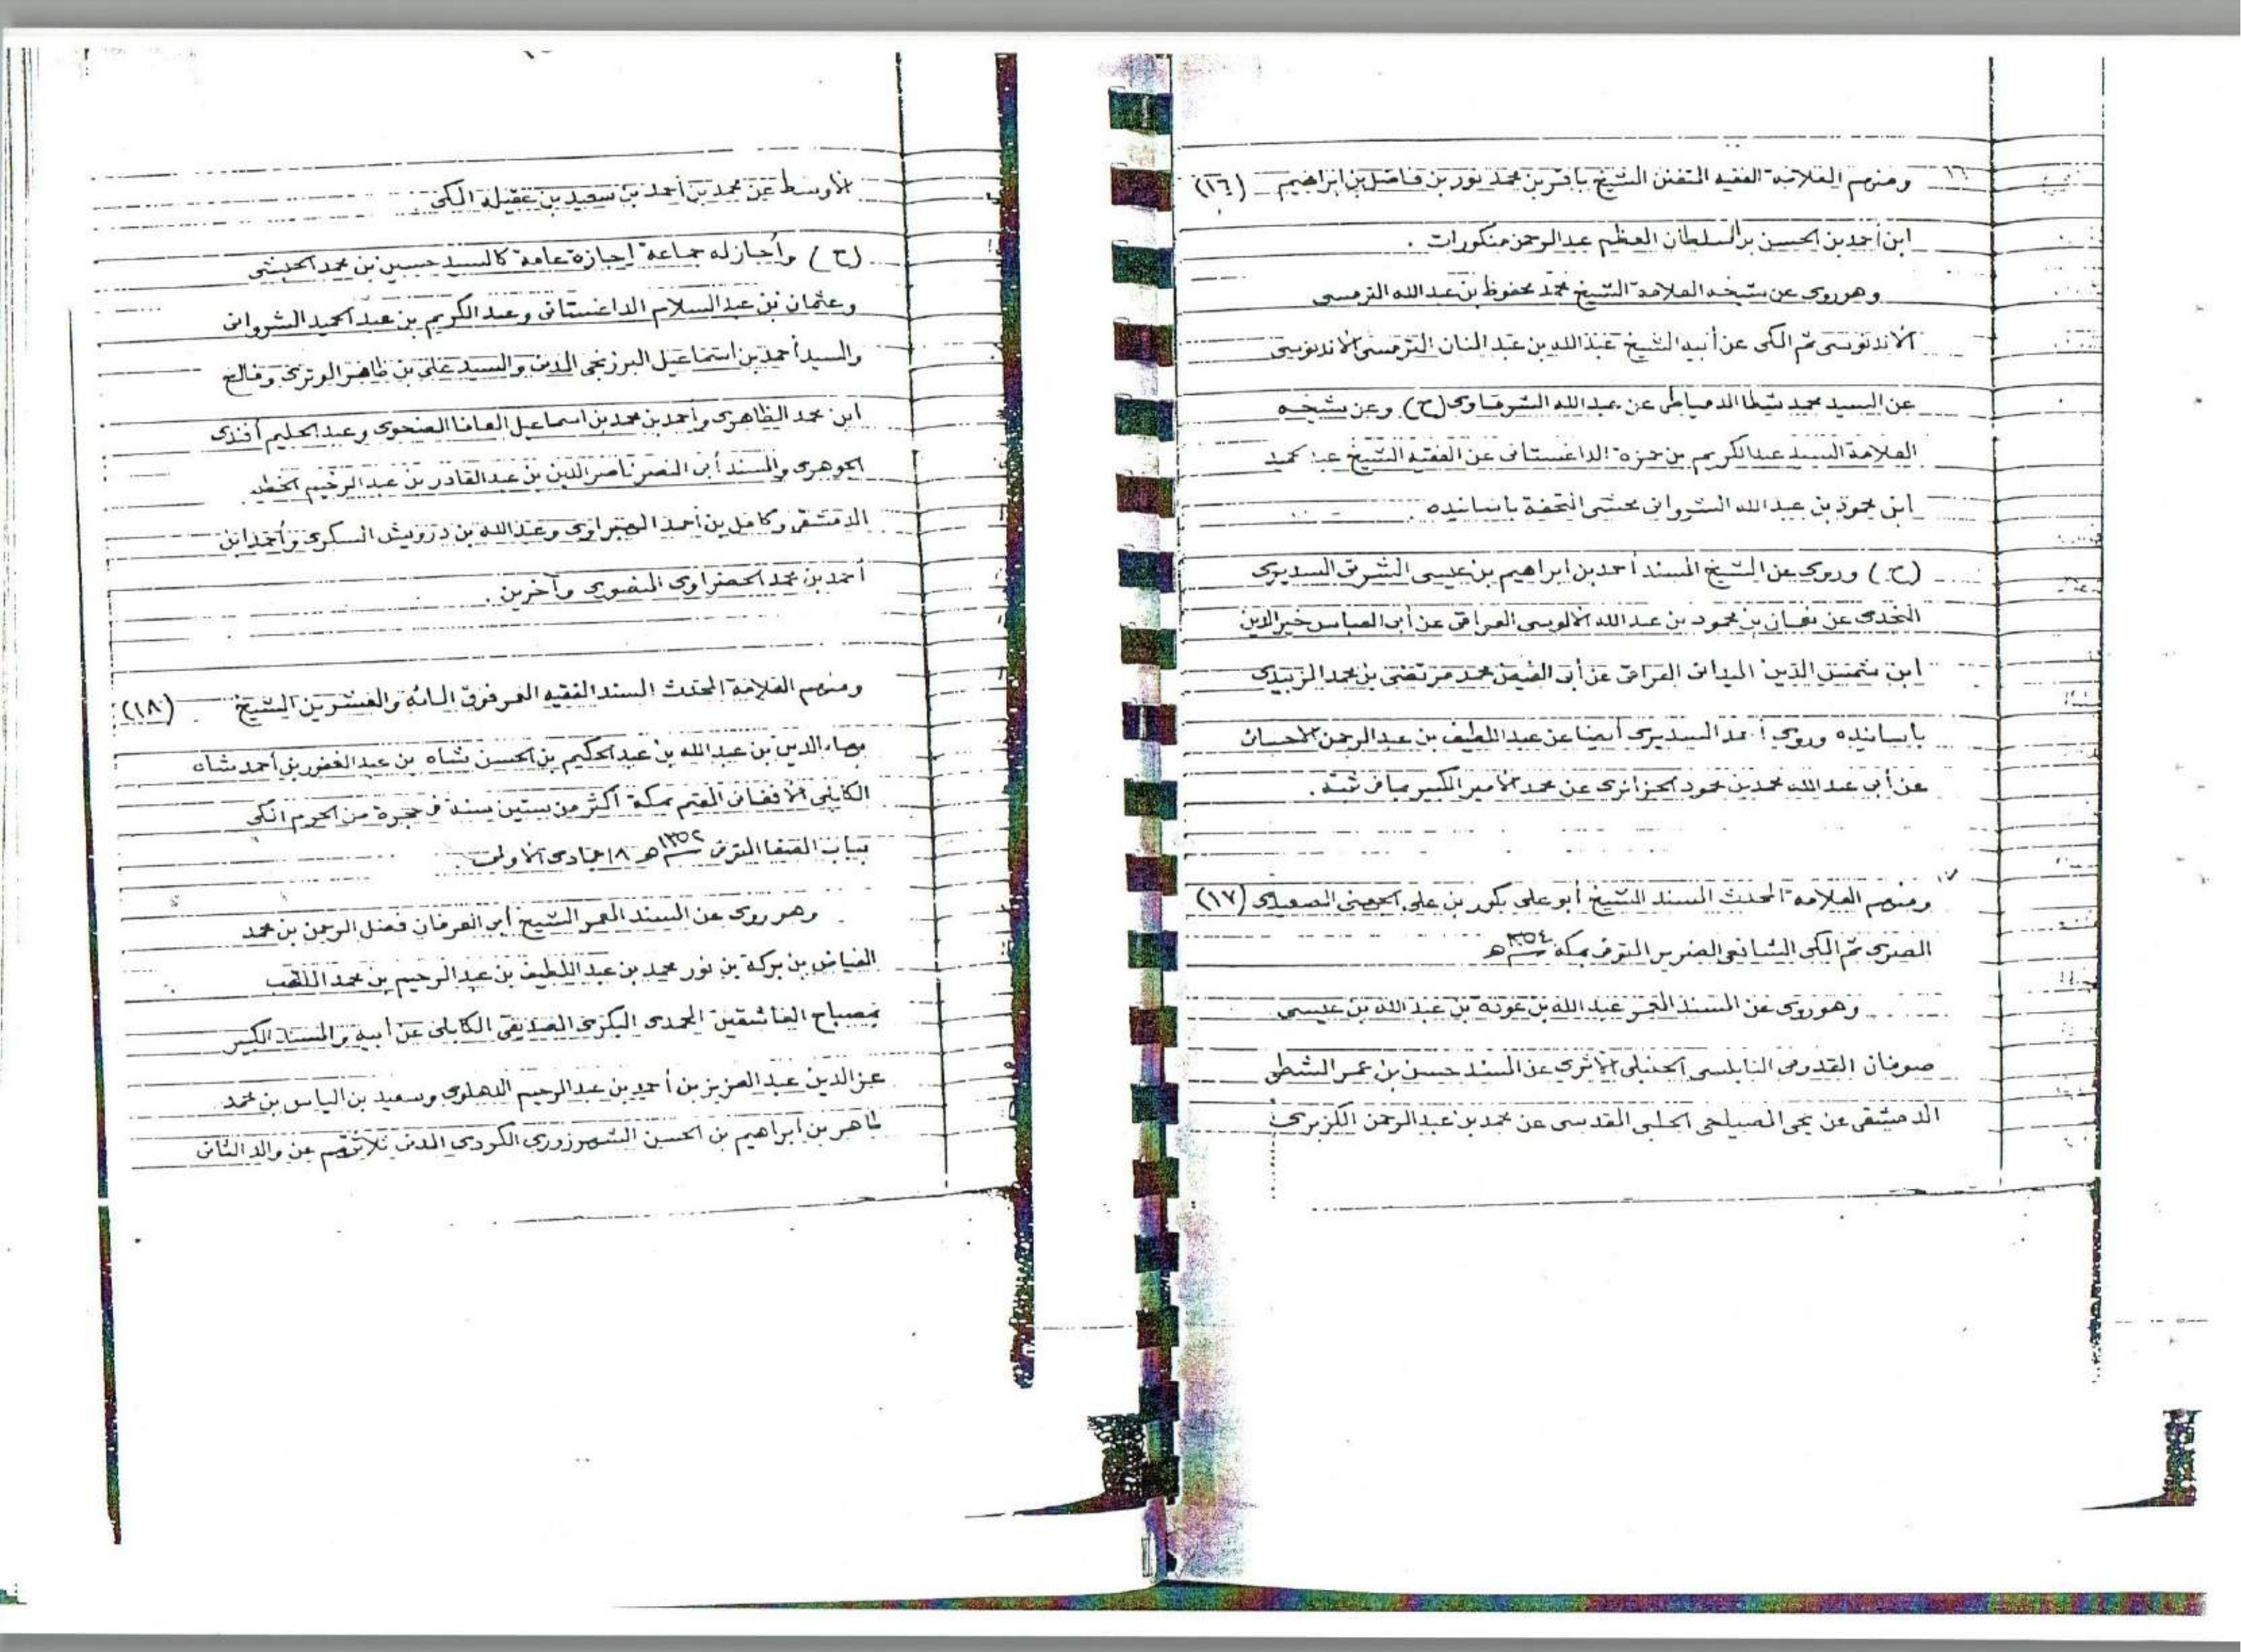 ١٦ ومنهم العلامة الفقيه المتفنن الشيخ باقر بن محمد نور بن فاضل بن ابراهيم (١٦)
ابن أحمد بن الحسن بن السلطان المعظم عبد الرحمن منكورات .
وهو روى عن شيخه العلامة الشيخ محمد محفوظ بن عبد الله الترمسى
الاندنوسى ثم المكى عن أبيه الشيخ عبد الله بن عبد المنان الترمسى الاندنوسى
عن السيد محمد شطا الدمياطى عن عبد الله الشرقاوى (ح) وعن شيخه
العلامة السيد عبد الكريم بن حمزة الداغستانى عن الفقيه الشيخ عبد الحميد
ابن محمود بن عبد الله الشروانى محشى التحفة باسانيده .
(ح) وروى عن الشيخ المسند أحمد بن ابراهيم بن عيسى الشرقى السديرى
النجدى عن نعمان بن محمود بن عبد الله الالوسى العراقى عن أبى العباس خير الدين
ابن شمس الدين الميدانى العراقى عن أبى الفيض محمد مرتضى بن محمد الزبيدى
باسانيده وروى أحمد السديرى أيضا عن عبد اللطيف بن عبد الرحمن الاحسائى
عن أبى عبد الله محمد بن محمود الجزائرى عن محمد الأمير الكبير بما فى ثبته .
١٧ ومنهم العلامة المحدث المسند الشيخ أبو على بكور بن على الصعيدى (١٧)
المصرى ثم المكى الشافعى الضرير المتوفى بمكة ١٣٥٤ هـ
وهو روى عن المسند المعمر عبد الله بن عودة بن عبد الله بن عيسى
صوفان القدومى النابلسى الحنبلى الأثرى عن المسند حسن بن عمر الشطى
الدمشقى عن يحى المصيلحى الحلبى القدسى عن محمد بن عبد الرحمن الكزبرى
الأوسط عن محمد بن أحمد بن سعيد بن عقيلة المكى .
(ح) وأجاز له جماعة إجازة عامة كالسيد حسين بن محمد الحبشى
وعثمان بن عبد السلام الداغستانى وعبد الكريم بن عبد الحميد الشروانى
والسيد أحمد بن اسماعيل البرزنجى المدنى والسيد على بن ظاهر الوترى وفالح
ابن محمد الظاهرى وأحمد بن محمد بن اسماعيل المعافا الضحوى وعبد الحليم أفندى
الجوهرى والمسند أبى النصر ناصر الدين بن عبد القادر بن عبد الرحيم الخطيب
الدمشقى وكامل بن أحمد الهبراوى وعبد الله بن درويش السكرى وأحمد ابن
أحمد بن محمد الحضراوى المنصورى وآخرين .
ومنهم العلامة المحدث المسند الفقيه المعمر فوق المائة والعشرين الشيخ (١٨)
بهاء الدين بن عبد الله بن عبد الحكيم بن الحسن شاه بن عبد الغفور بن أحمد شاه
الكابلى الأفغانى المقيم بمكة أكثر من ستين سنة فى حجرة من الحرم المكى
بباب الصفا المتوفى ١٣٥٢ هـ ١٨ جمادى الأولى .
وهو روى عن المسند المعمر الشيخ أبى العرفان فضل الرحمن بن محمد
الفياض بن بركة بن نور محمد بن عبد اللطيف بن عبد الرحيم بن محمد الملقب
بمصباح العاشقين المحمدى البكرى الصديقى الكابلى عن أبيه والمسند الكبير
عز الدين عبد العزيز بن أحمد بن عبد الرحيم الدهلوى وسعيد بن الياس بن محمد
طاهر بن ابراهيم بن الحسن الشهرزورى الكردى المدنى ثلاثتهم عن والد الثانى